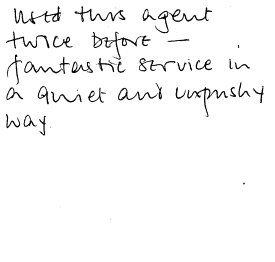 Used this agent
twice before —
fantastic service in
a quiet and unpushy
way.